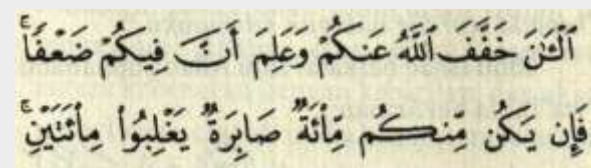 ٱلْـَٰٔنَ خَفَّفَ ٱللَّهُ عَنكُمْ وَعَلِمَ أَنَّ فِيكُمْ ضَعْفًا ۚ
فَإِن يَكُن مِّنكُم مِّا۟ئَةٌ صَابِرَةٌ يَغْلِبُوا۟ مِا۟ئَتَيْنِ ۚ